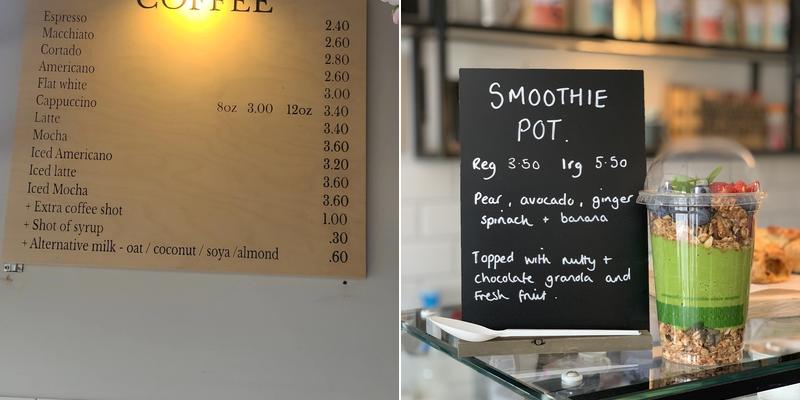 COFFEE
Espresso 2.40
Macchiato 2.60
Cortado 2.80
Americano 2.60
Flat white 3.00
Cappuccino 8oz 3.00 12oz 3.40
Latte 3.40
Mocha 3.60
Iced Americano 3.20
Iced latte 3.60
Iced Mocha 3.60
+ Extra coffee shot 1.00
+ Shot of syrup .30
+ Alternative milk - oat / coconut / soya /almond .60
SMOOTHIE
POT.
Reg 3.50 lrg 5.50
Pear, avocado, ginger
spinach + banana
Topped with nutty +
chocolate granola and
Fresh fruit.